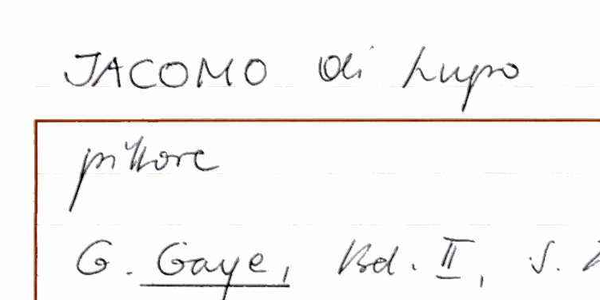 JACOMO di Lupo
pittore
G. Gaye, Bd. II, S.